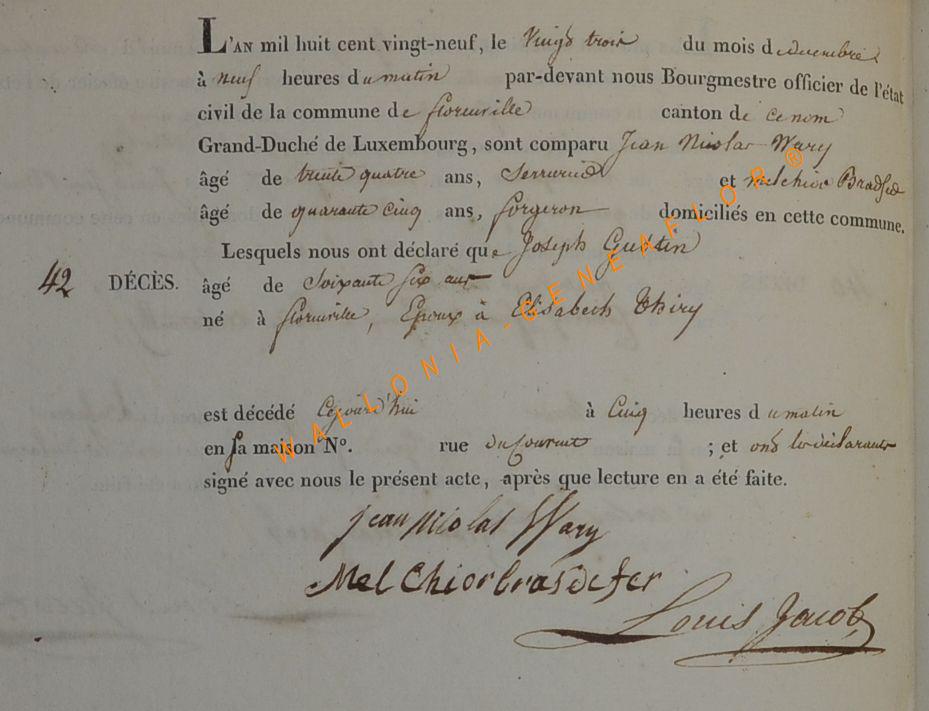 L'AN mil huit cent vingt-neuf, le Vingt trois du mois de decembre
à neuf heures du matin par-devant nous Bourgmestre officier de l'état
civil de la commune de florenville canton de ce nom
Grand-Duché de Luxembourg, sont comparu Jean Nicolas Wary
âgé de trente quatre ans, Serrurier et melchior Brasdefer
âgé de quarante cinq ans, forgeron domiciliés en cette commune.
Lesquels nous ont déclaré que Joseph Gustin
42 DÉCÈS. âgé de Soixante six ans
né à florenville, Epoux à Elisabeth Thiry
est décédé Cejourd'hui à Cinq heures du matin
en sa maison Nº. rue du Couvent ; et ont les déclarants
signé avec nous le présent acte, après que lecture en a été faite.
jean nicolas Wary
Melchior brasdefer
Louis Jacob
WALLONIA-GENEAFLOR ®